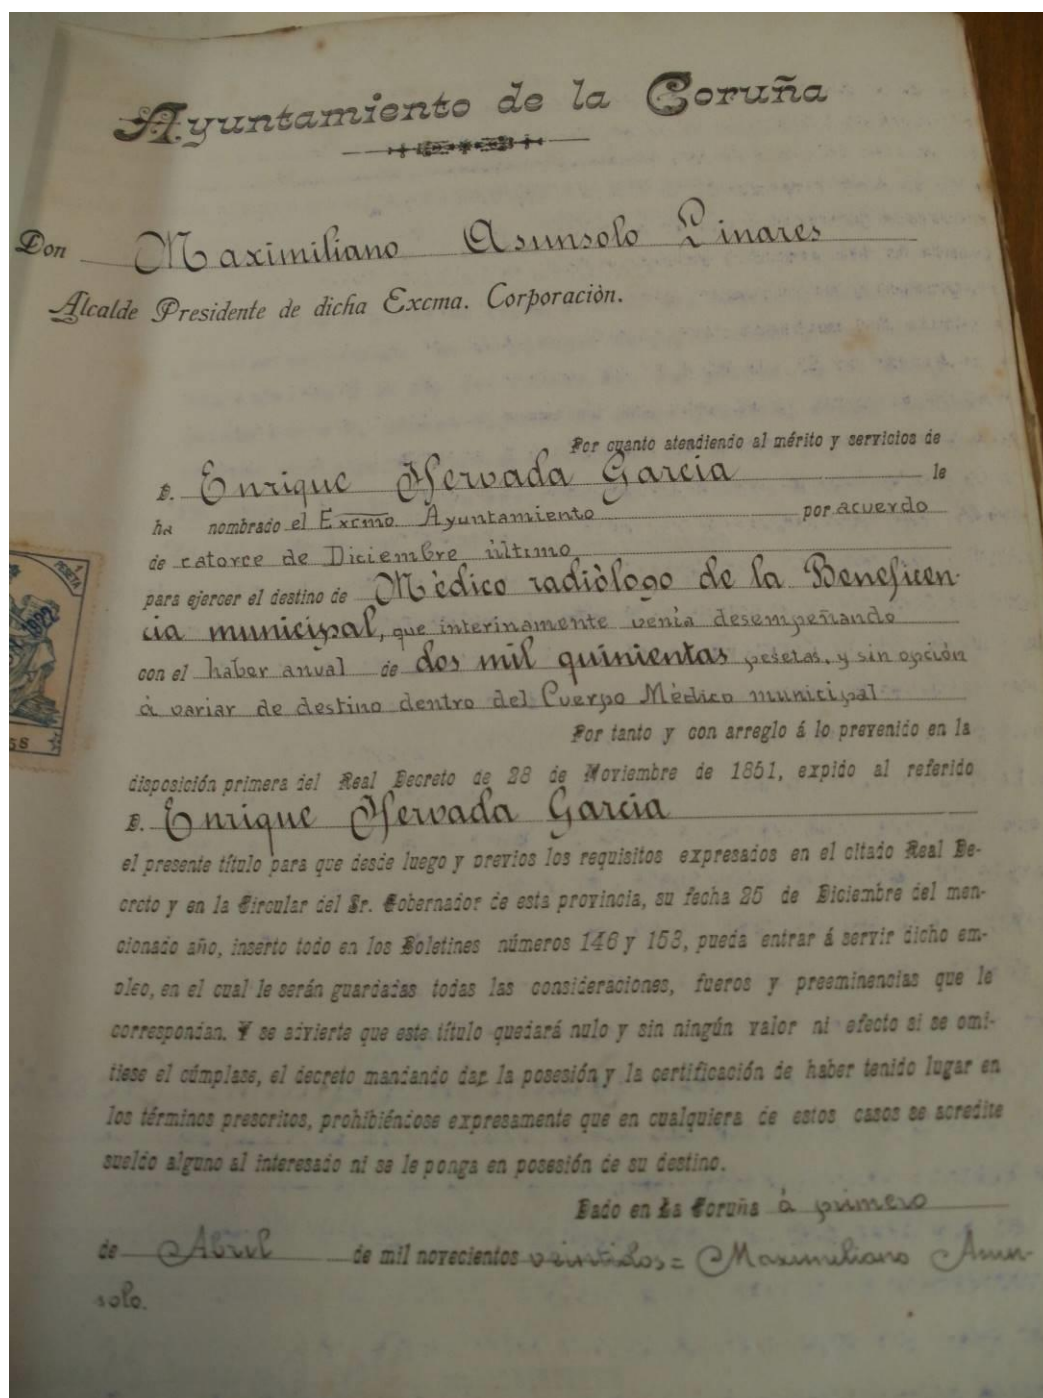 Ayuntamiento de la Coruña
Don Maximiliano Asunsolo Linares
Alcalde Presidente de dicha Excma. Corporación.
Por cuanto atendiendo al mérito y servicios de
D. Enrique Hervada Garcia le
ha nombrado el Excmo Ayuntamiento por acuerdo
de catorce de Diciembre último
para ejercer el destino de Mèdico radiòlogo de la Beneficen-
cia municipal, que interinamente venia desempeñando
con el haber anual de dos mil quinientas pesetas, y sin opción
à variar de destino dentro del Cuerpo Mèdico municipal
Por tanto y con arreglo á lo prevenido en la
disposición primera del Real Decreto de 28 de Noviembre de 1851, expido al referido
D. Enrique Hervada Garcia
el presente título para que desde luego y previos los requisitos expresados en el citado Real De-
creto y en la Circular del Sr. Gobernador de esta provincia, su fecha 25 de Diciembre del men-
cionado año, inserto todo en los Boletines números 146 y 153, pueda entrar á servir dicho em-
pleo, en el cual le serán guardadas todas las consideraciones, fueros y preeminencias que le
correspondan. Y se advierte que este título quedará nulo y sin ningún valor ni efecto si se omi-
tiese el cúmplase, el decreto mandando dar la posesión y la certificación de haber tenido lugar en
los términos prescritos, prohibiéndose expresamente que en cualquiera de estos casos se acredite
sueldo alguno al interesado ni se le ponga en posesión de su destino.
Dado en La Coruña à primero
de Abril de mil novecientos veintidos = Maximiliano Asun-
solo.
1 PESETA
1922
58